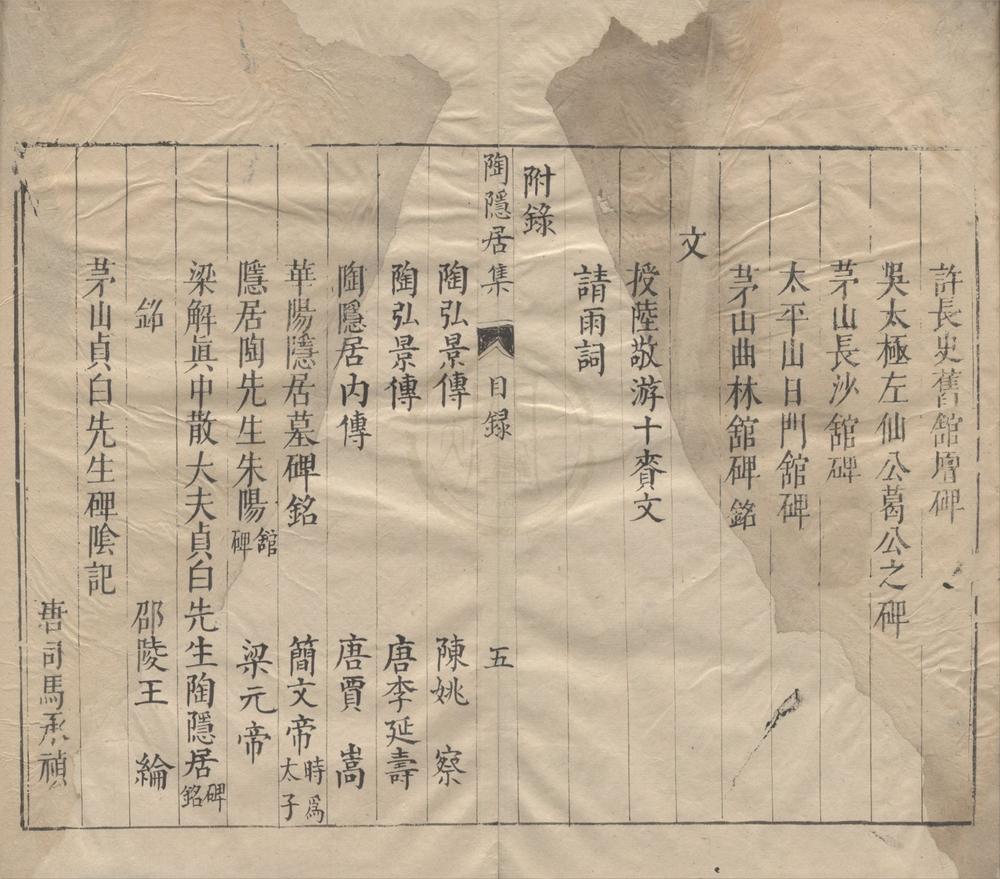 許長史舊館壇碑
吳太極左仙公葛公之碑
茅山長沙館碑
太平山日門館碑
茅山曲林館碑銘
文
授陸敬游十賚文
請雨詞
附錄
陶隱居集 目録 五
陶弘景傳 陳姚 察
陶弘景傳 唐李延壽
陶隱居内傳 唐賈 嵩
華陽隱居墓碑銘 簡文帝時爲太子
隱居陶先生朱陽館碑 梁元帝
梁解眞中散大夫貞白先生陶隱居碑銘
銘 邵陵王 綸
茅山貞白先生碑陰記
唐司馬承禎